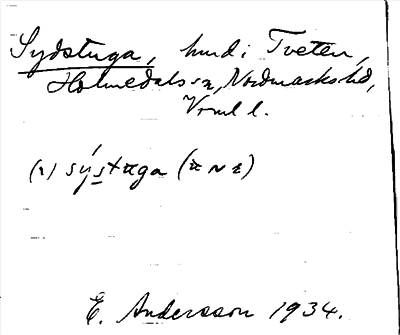 Sydstuga, hmd i Tveten,
Holmedals sn, Nordmarks hd,
Vrml l.
(1) sýstuga
E. Andersson 1934.